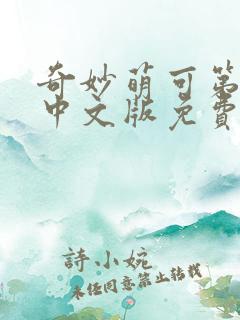 奇妙萌可第
中文版免費
詩小婉
未经同意禁止转载